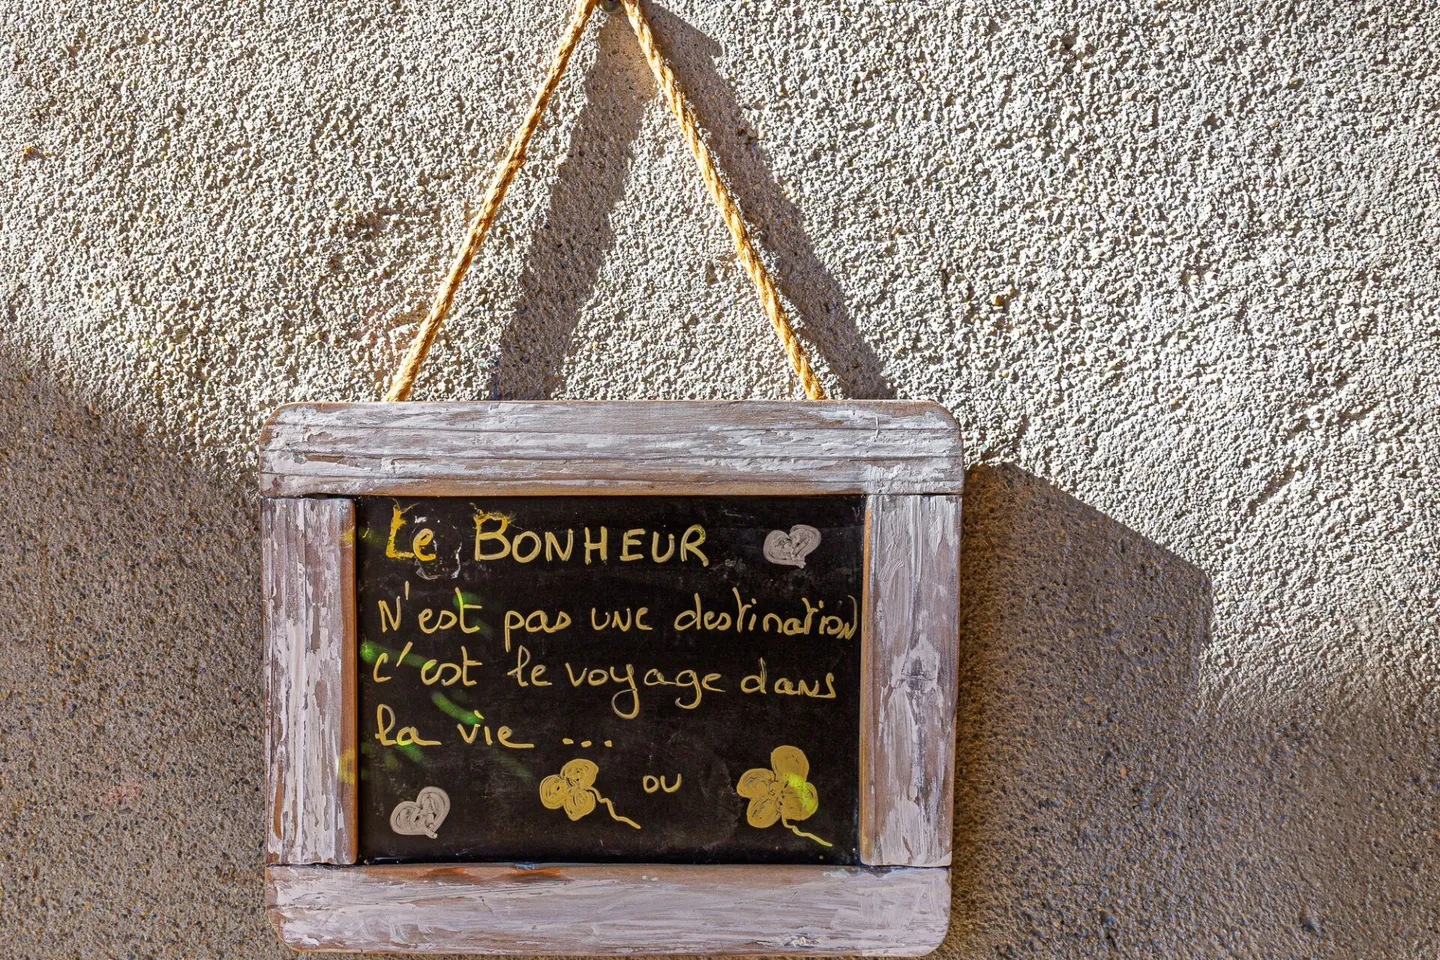 Le BONHEUR
N'est pas une destination
c'est le voyage dans
la vie ...
ou